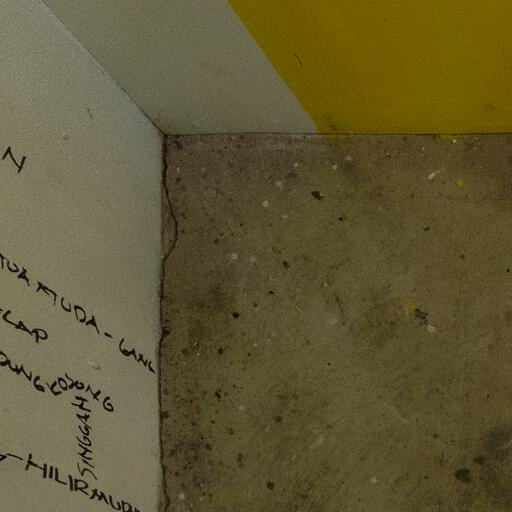 N
TUA MUDA - GANG
-CAP
DUNG KOSONG
SINGGAH
-HILIR MUDI